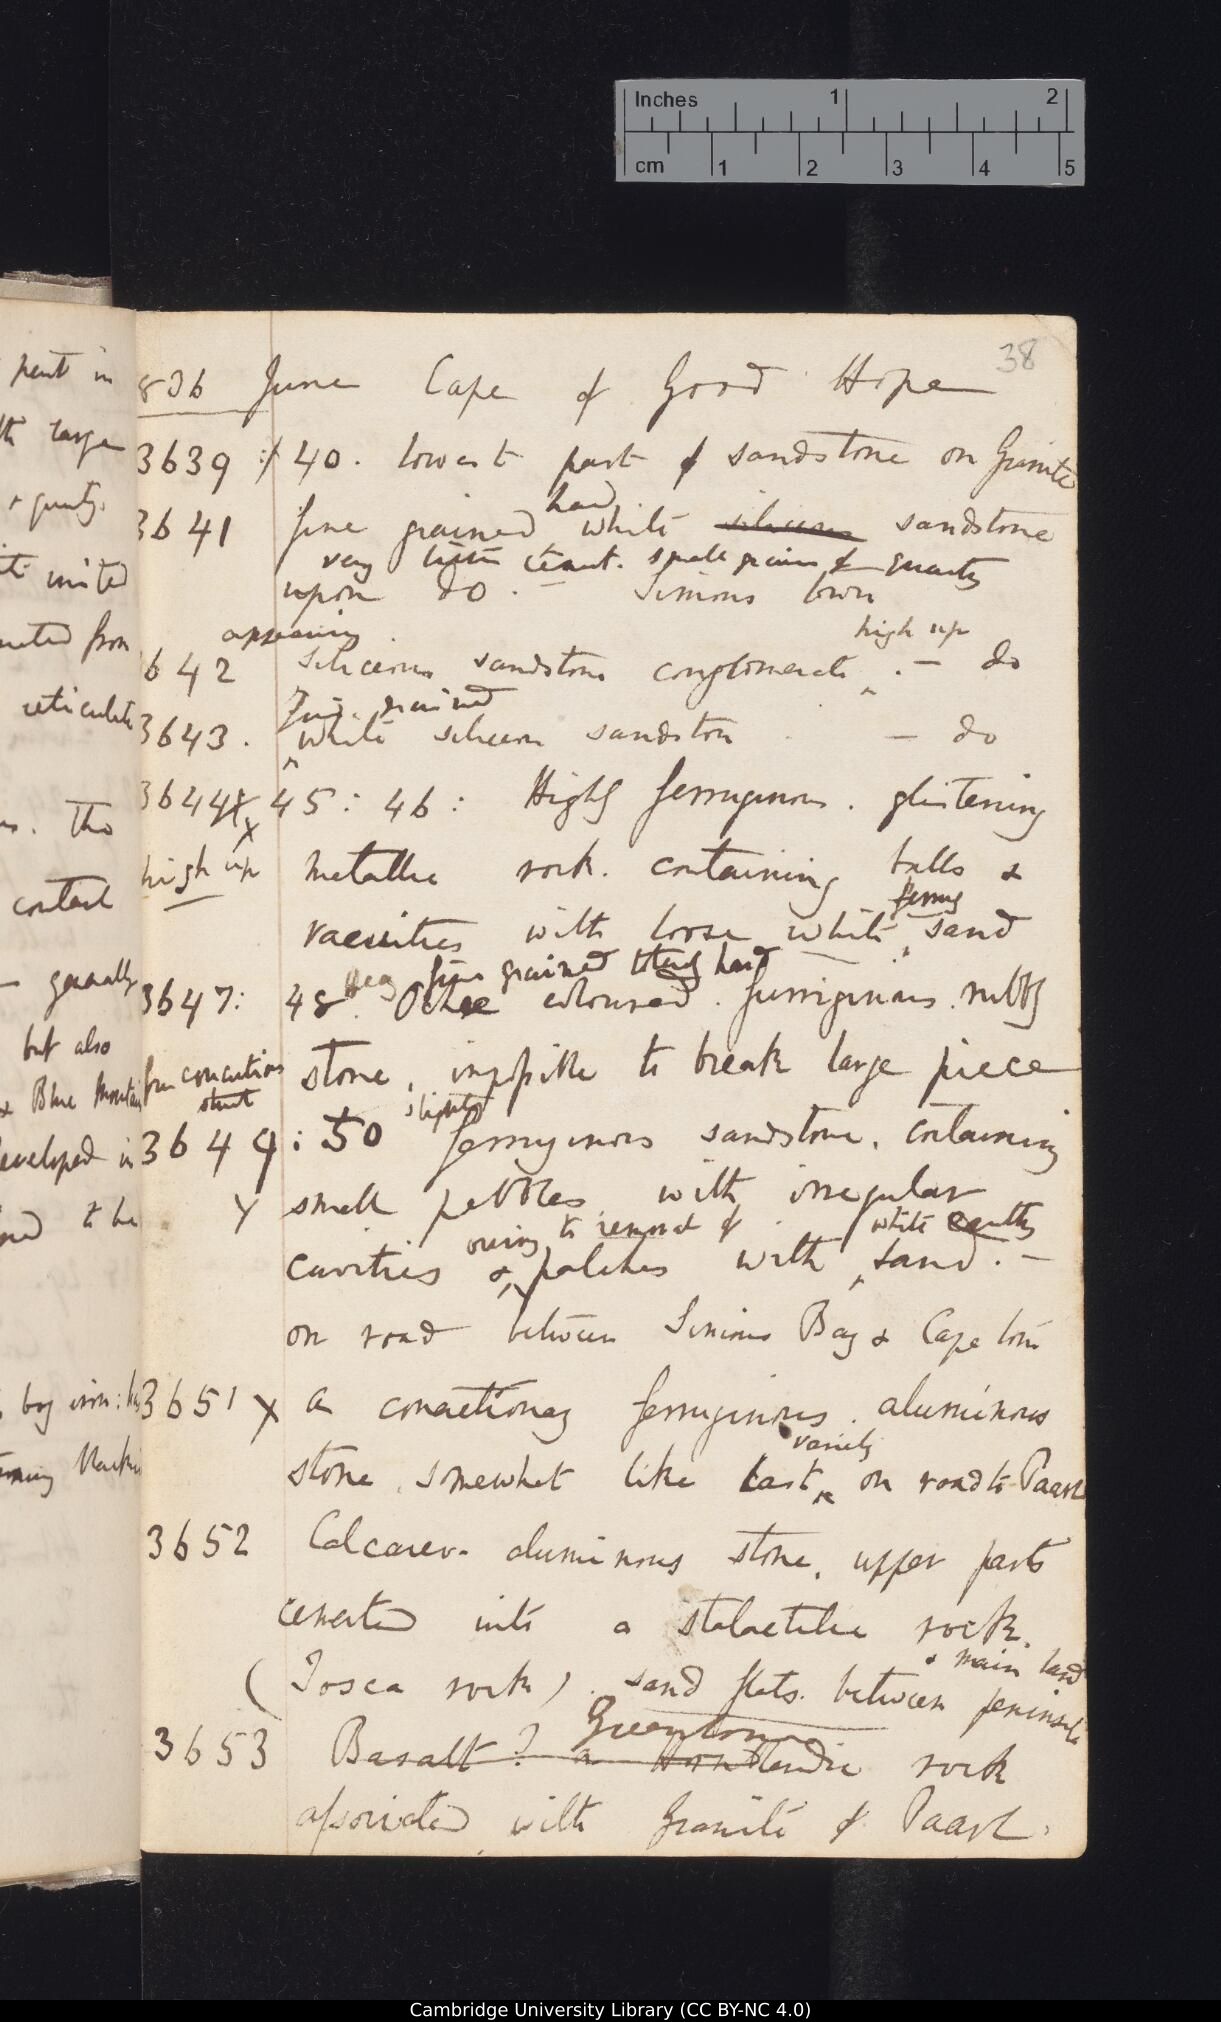 Inches 1 2
cm 1 2 3 4 5
38
836 June Cape of Good Hope
3639 : 40. lowest part of sandstone on Granite
hard
3641 fine grained white siliceous sandstone
very little cement. small grains of quartz
upon do. — Simons town
appearing high up
3642 siliceous sandstone conglomerate . — do
Fine grained
3643. white siliceous sandstone — do
3644 X 45 : 46 : Highly ferruginous . glistening
X
high up metallic rock. containing balls &
ferrug
vacuities with loose white sand
Heavy fine grained hard
3647 : 48. Ochre coloured . ferruginous . rubbly
stone , impossible to break large piece
from concretions
slightly
3649 : 50 ferruginous sandstone . containing
X small pebbles with irregular
owing to removal of white earthy
cavities & patches with sand . —
on road between Simons Bay & Cape town
3651 X a concretionary ferruginous . aluminous
variety
stone , somewhat like last on road to Paarl
3652 Calcareo- aluminous stone , upper parts
cemented into a stalactitic rock.
& main land
( Tosca rock ) . sand flats . between peninsula
Greenstone
3653 Basalt ? a Hornblendic rock
associated with Granite of Paarl .
pent in
large
united
from
The
contact
generally
but also
& Blue Mountain
developed in
to be
bog iron :
Cambridge University Library (CC BY-NC 4.0)